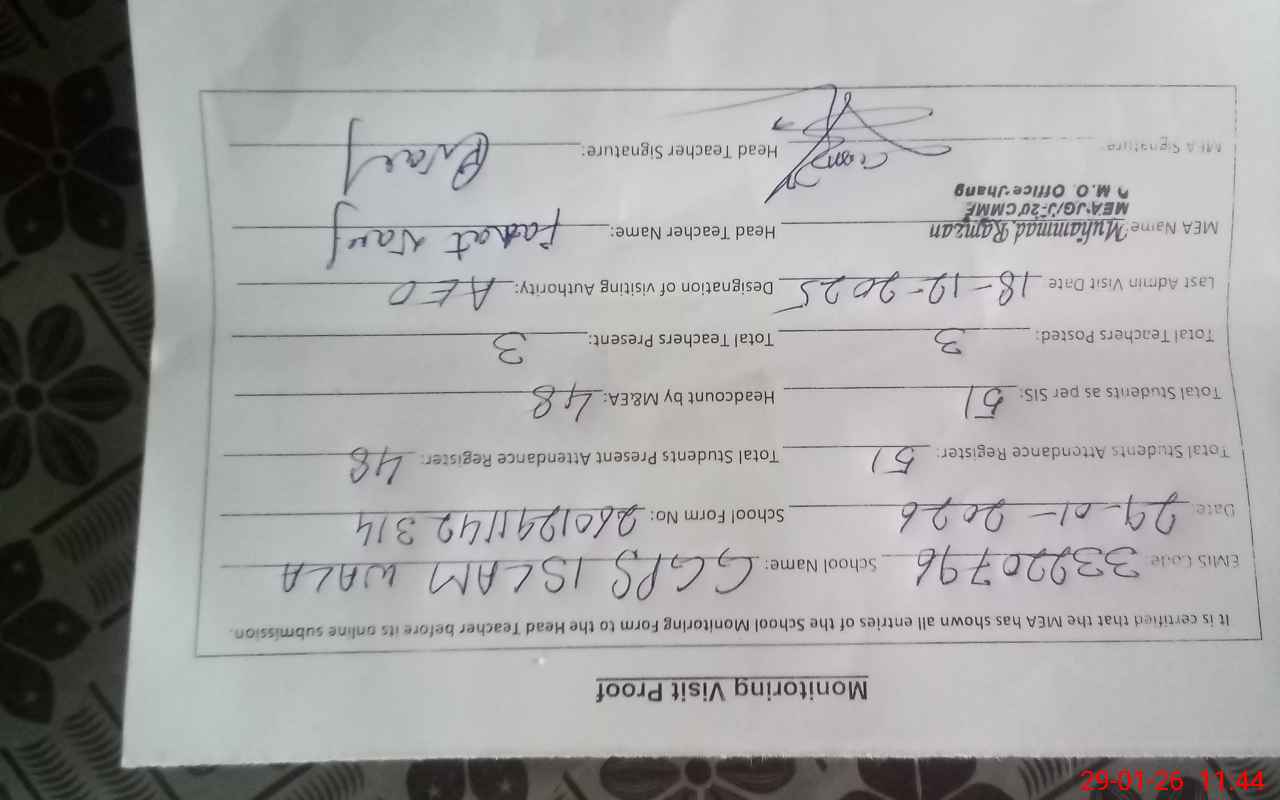 Monitoring Visit Proof
It is certified that the MEA has shown all entries of the School Monitoring Form to the Head Teacher before its online submission.
EMIS Code: 33220796 School Name: GGPS ISLAM WALA
Date: 29-01-2026 School Form No: 2601291142314
Total Students Attendance Register: 51 Total Students Present Attendance Register: 48
Total Students as per SIS: 51 Headcount by M&EA: 48
Total Teachers Posted: 3 Total Teachers Present: 3
Last Admin Visit Date: 18-12-2025 Designation of visiting Authority: AEO
MEA Name: Muhammad Ramzan Head Teacher Name:
MEA JG/J-20 CMMF
M.O. Office Jhang
MEA Signature: Head Teacher Signature:
29-01-26 11:44